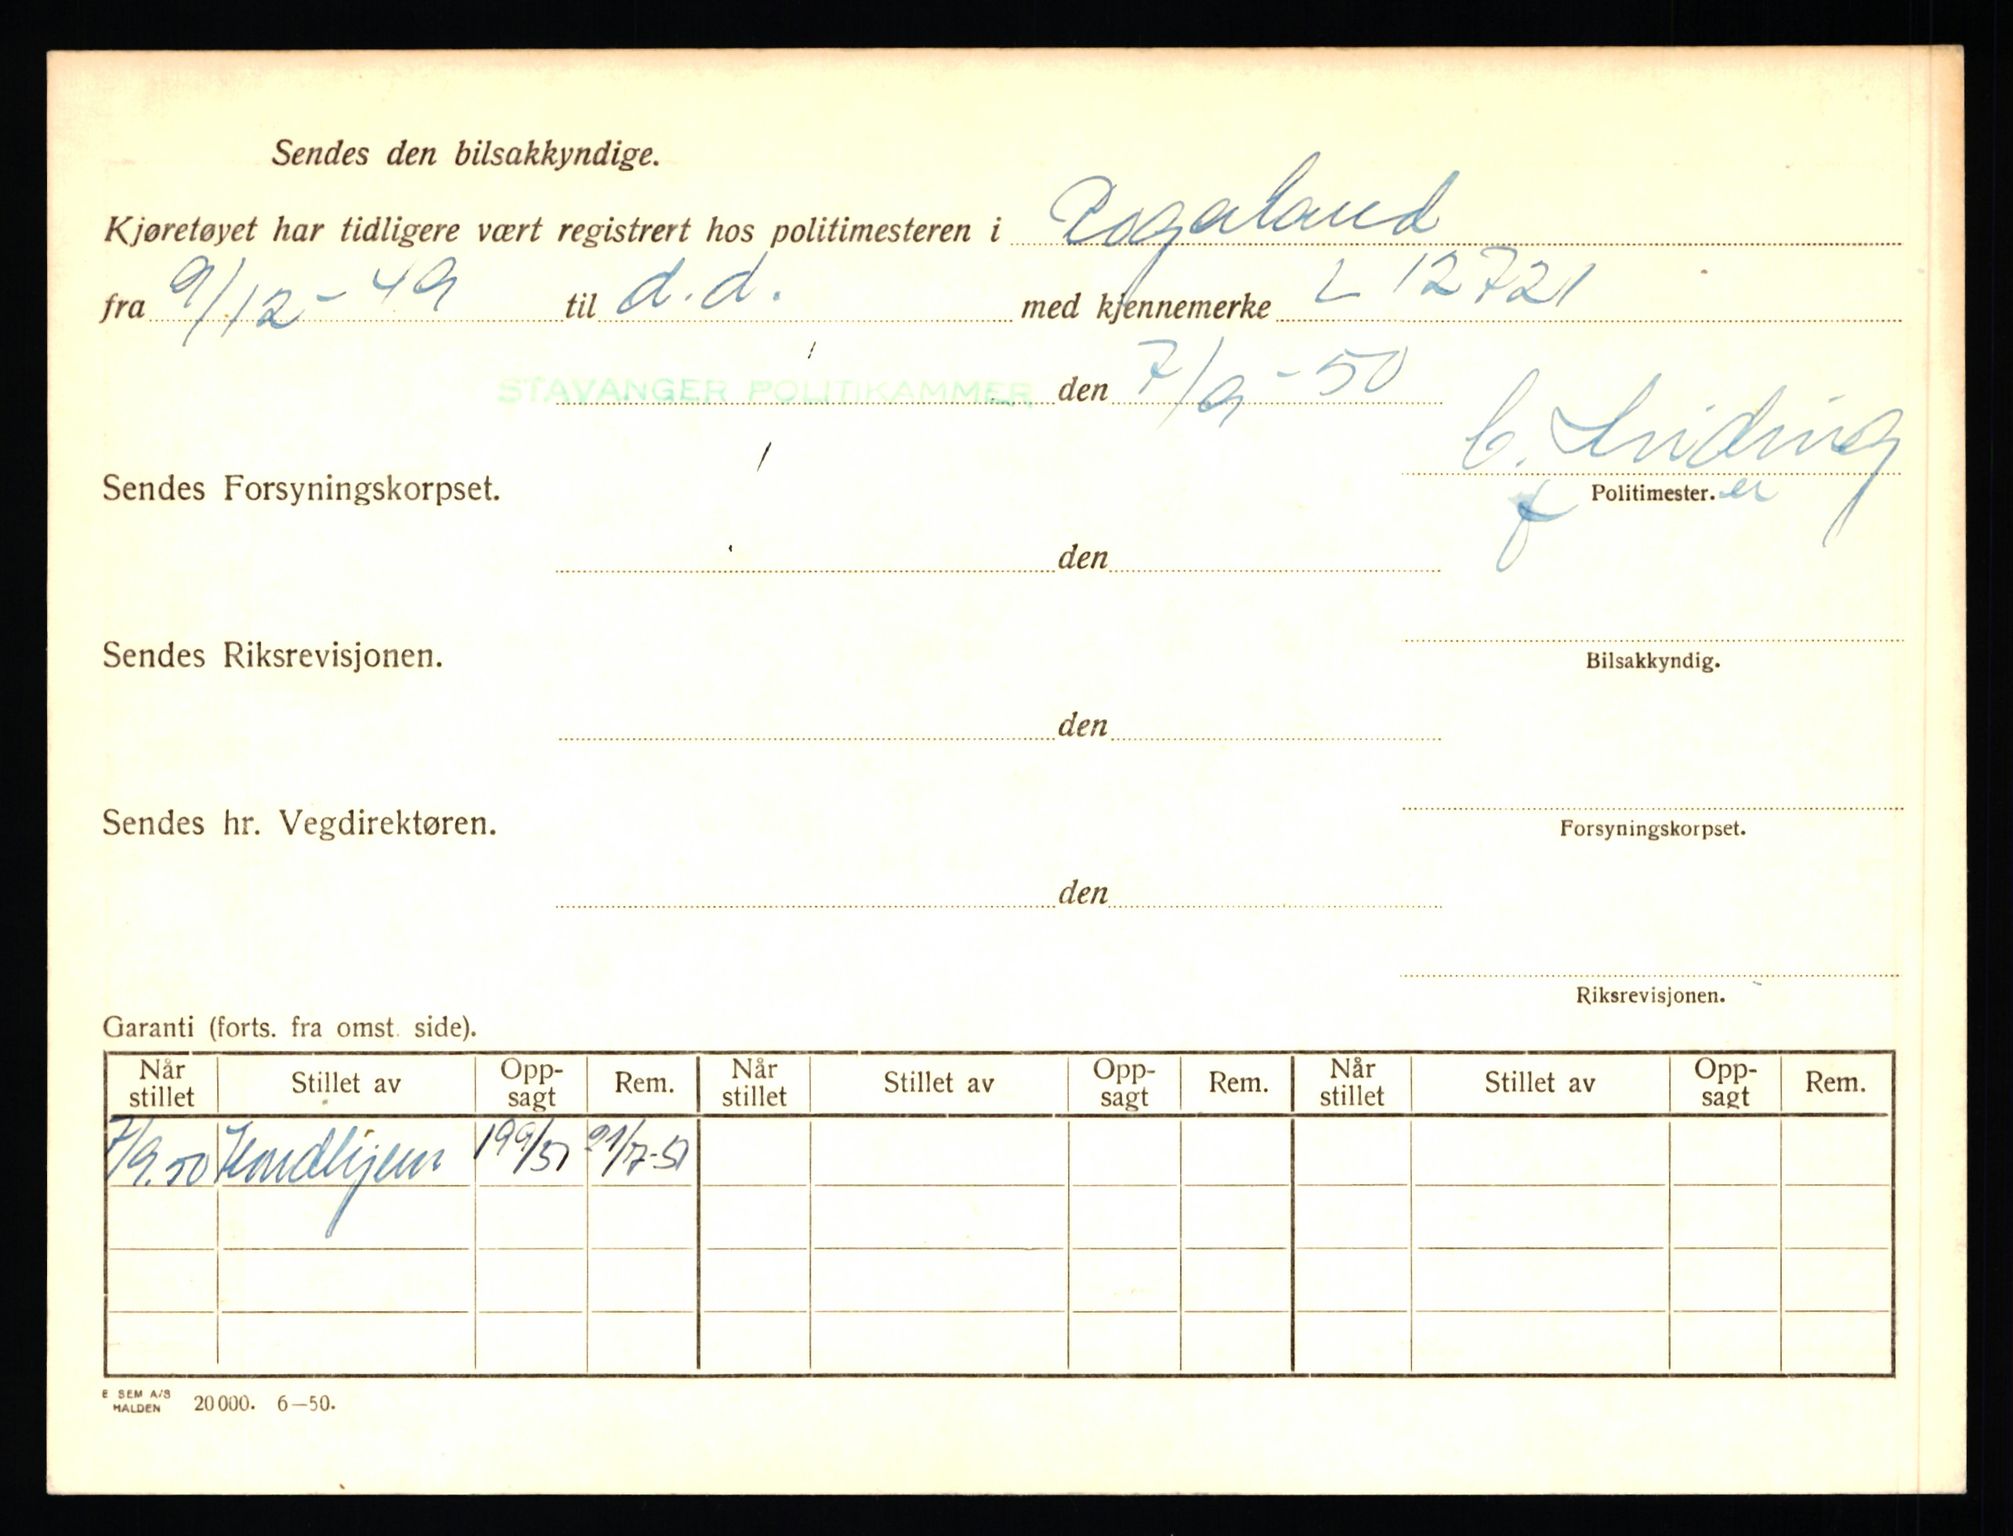 Sendes den bilsakkyndige.
Kjøretøyet har tidligere vært registrert hos politimesteren i Rogaland
fra 9/12-49 til d.d. med kjennemerke L 12721
STAVANGER POLITIKAMMER den 7/9-50
Sendes Forsyningskorpset.
Politimester.
den
Sendes Riksrevisjonen.
Bilsakkyndig.
den
Sendes hr. Vegdirektøren.
Forsyningskorpset.
den
Riksrevisjonen.
Garanti (forts. fra omst. side).
Når stillet Stillet av Opp-sagt Rem. Når stillet Stillet av Opp-sagt Rem. Når stillet Stillet av Opp-sagt Rem.
7/9.50 21/7-51
E SEM A/S
HALDEN 20000. 6-50.